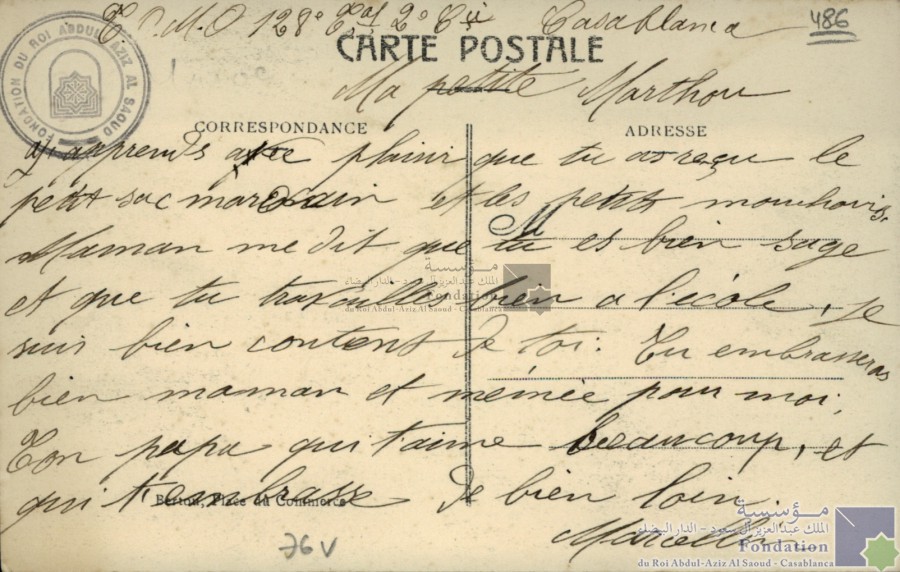 486
Casablanca
CARTE POSTALE
FONDATION DU ROI ABDUL AZIZ AL SAOUD
Ma petite Marthou
CORRESPONDANCE
ADRESSE
J'apprends avec plaisir que tu as reçu le
petit sac marocain et les petits mouchoirs.
M
Maman me dit que tu es bien sage
مؤسسة
الملك عبد العزيز آل سعود - الدار البيضاء
du Roi Abdul-Aziz Al Saoud - Casablanca
et que tu travailles bien a l'école, je
suis bien content de toi. Tu embrasseras
bien maman et mémée pour moi,
Ton papa qui t'aime beaucoup, et
qui t'embrasse de bien loin.
Place du Commerce
Marcellin
76 V
مؤسسة
الملك عبد العزيز آل سعود - الدار البيضاء
Fondation
du Roi Abdul-Aziz Al Saoud - Casablanca